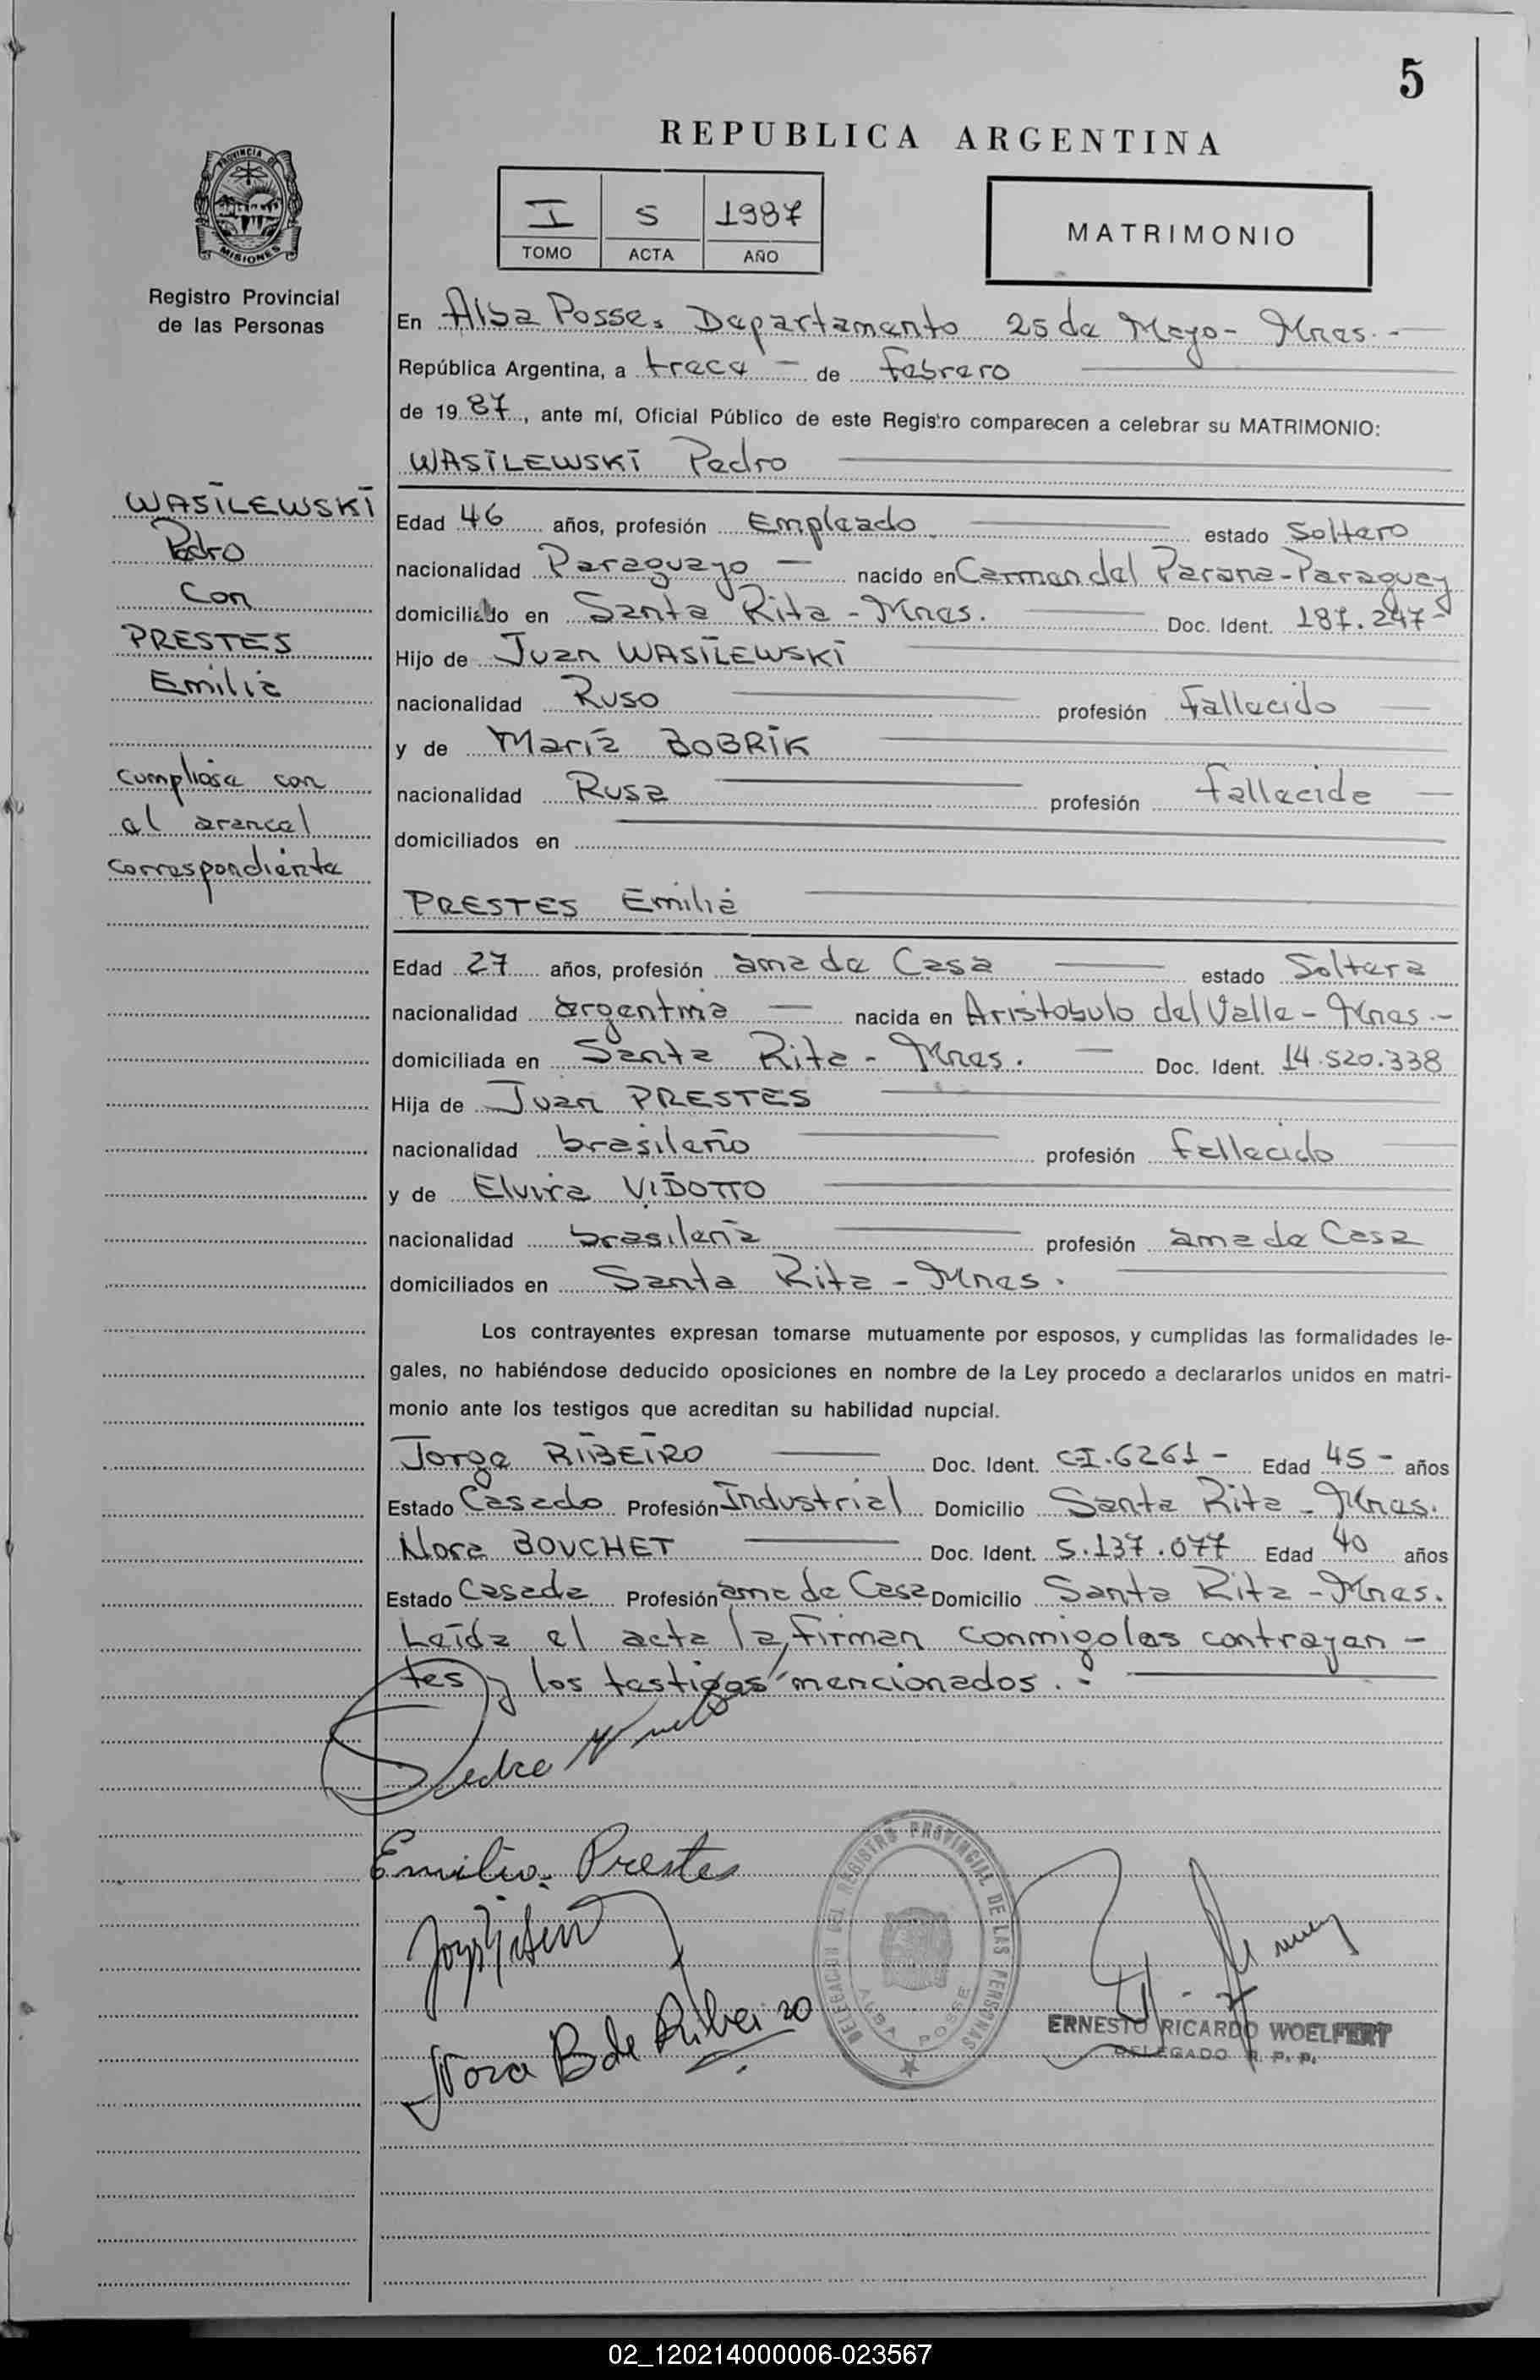 5
REPUBLICA ARGENTINA
PROVINCIA DE
MISIONES
Registro Provincial
de las Personas
I 5 1987
TOMO ACTA AÑO
MATRIMONIO
En Alba Posse. Departamento 25 de Mayo - Mnes. -
República Argentina, a trece - de febrero
de 1987, ante mí, Oficial Público de este Registro comparecen a celebrar su MATRIMONIO:
WASILEWSKI Pedro
WASILEWSKI
Pedro
Con
PRESTES
Emilia
cumpliose con
el arancel
correspondiente
Edad 46 años, profesión Empleado estado Soltero
nacionalidad Paraguayo - nacido en Carmen del Parana - Paraguay
domiciliado en Santa Rita - Mnes. Doc. Ident. 187.247 -
Hijo de Juan WASILEWSKI
nacionalidad Ruso profesión fallecido
y de María BOBRIK
nacionalidad Rusa profesión fallecida
domiciliados en
PRESTES Emilia
Edad 27 años, profesión ama de Casa estado Soltera
nacionalidad argentina - nacida en Aristobulo del Valle - Mnes. -
domiciliada en Santa Rita - Mnes. - Doc. Ident. 14.520.338
Hija de Juan PRESTES
nacionalidad brasileño profesión fallecido
y de Elvira VIDOTTO
nacionalidad brasileña profesión ama de Casa
domiciliados en Santa Rita - Mnes.
Los contrayentes expresan tomarse mutuamente por esposos, y cumplidas las formalidades le-
gales, no habiéndose deducido oposiciones en nombre de la Ley procedo a declararlos unidos en matri-
monio ante los testigos que acreditan su habilidad nupcial.
Jorge RIBEIRO Doc. Ident. C.I. 6261 - Edad 45 - años
Estado Casado Profesión Industrial Domicilio Santa Rita - Mnes.
Nora BOUCHET Doc. Ident. 5.137.077 Edad 40 años
Estado Casada Profesión ama de Casa Domicilio Santa Rita - Mnes.
Leída el acta la firman conmigo los contrayen -
tes y los testigos mencionados. -
Pedro
Emilia Prestes
Nora B de Ribeiro
DELEGACION DEL REGISTRO PROVINCIAL DE LAS PERSONAS
ALBA POSSE
ERNESTO RICARDO WOELFERT
DELEGADO R. P. P.
02_120214000006-023567